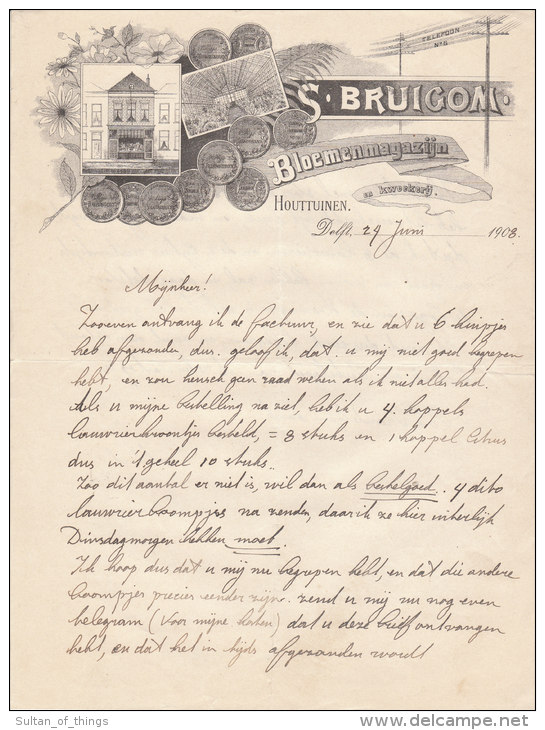 TELEFOON
No 5
S. BRUIGOM.
Bloemenmagazijn
en kweekerij.
HOUTTUINEN.
Delft, 29 Juni 1908.
Mijnheer!
Zooeven ontvang ik de factuur, en zie dat u 6
heb afgezonden, dus geloof ik, dat u mij niet goed begrepen
hebt, en zou heusch geen raad weten als ik niet alles had.
Als u mijne bestelling na ziet, heb ik u 4 koppels
lauwrierkroontjes besteld, = 8 stuks en 1 koppel Citrus
dus in 't geheel 10 stuks.
Zoo dit aantal er niet is, wil dan als bestelgoed. 4 dito
lauwrier boompjes na zenden, daar ik ze hier uiterlijk
Dinsdagmorgen hebben moet.
Ik hoop dus dat u mij nu begrepen hebt, en dat die andere
boompjes precies eender zijn. zend u mij nu nog even
telegram (voor mijne kosten) dat u deze brief ontvangen
hebt, en dat het in tijds afgezonden wordt
Sultan_of_things
delcampe.net